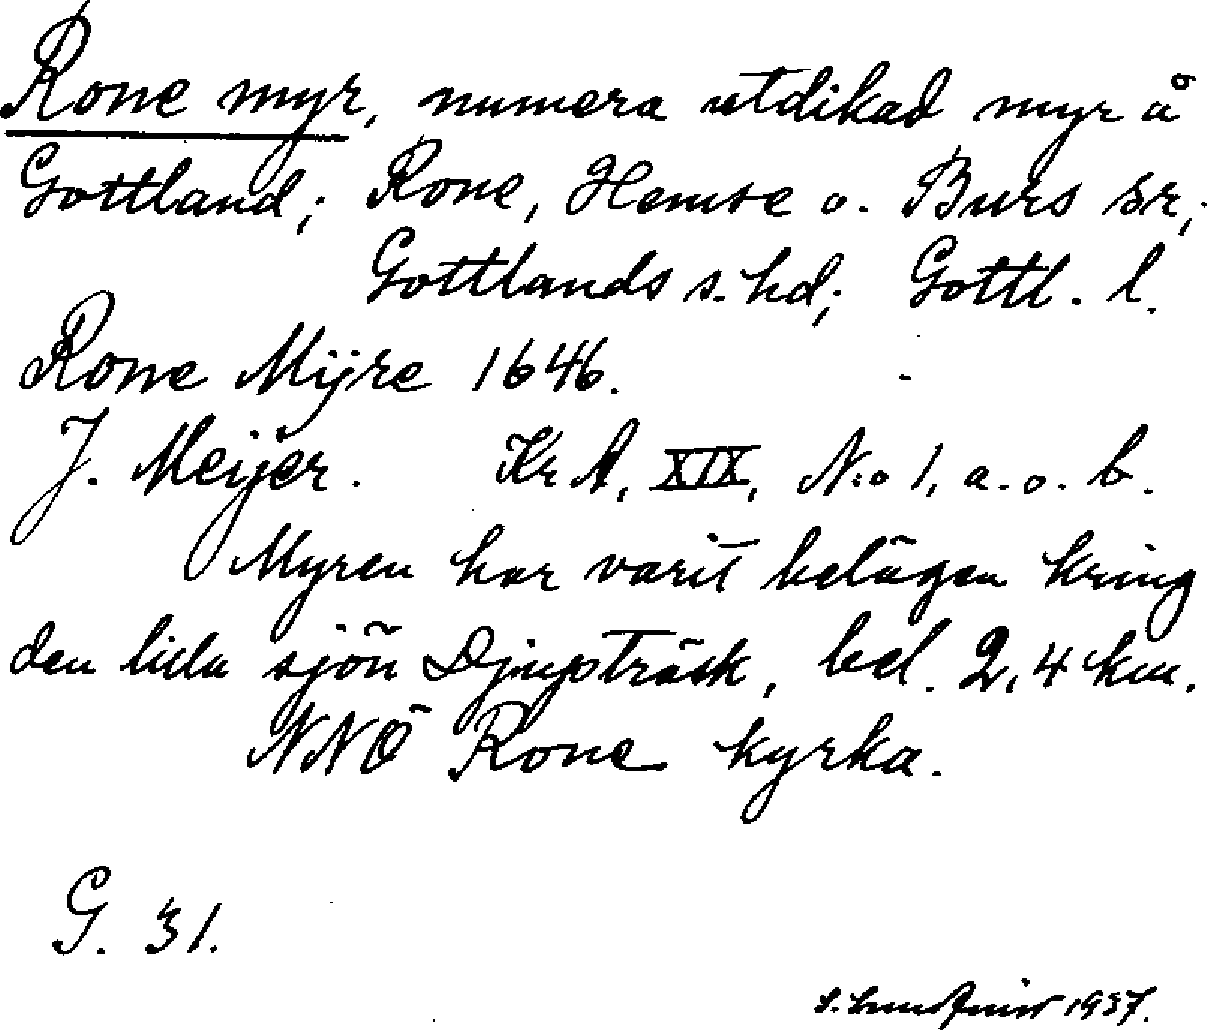 Rone myr, numera utdikad myr å
Gottland; Rone, Hemse o. Burs sr,;
Gottlands s. hd; Gottl. l.
Rone Mijre 1646.
J. Meijer. Kr A, XIX, N:o 1, a. o. b.
Myren har varit belägen kring
den lilla sjön Djupträsk, bel. 2,4 km.
NNÖ Rone kyrka.
G. 31.
1937.